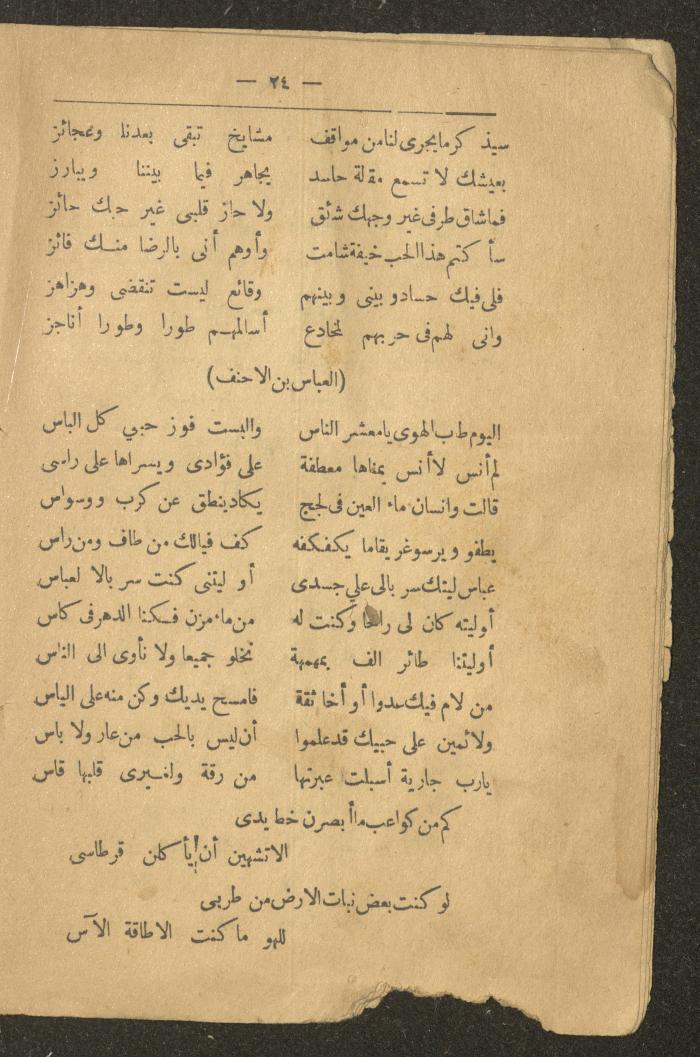 — ٢٤ —
سيذكر ما يجرى لنا من مواقف مشايخ تبقى بعدنا وعجائز
بعيشك لا تسمع مقالة حاسد يجاهر فيما بيننا ويبارز
فما شاق طرفى غير وجهك شائق ولا حاز قلبى غير حبك حائز
سأ كتم هذا الحب خيفة شامت وأوهم أنى بالرضا منك فائز
فلى فيك حساد وبينى وبينهم وقائع ليست تنقضى وهزاهز
وانى لهم فى حربهم لمخادع أسالمهم طورا وطورا أناجز
(العباس بن الاحنف)
اليوم طاب الهوى يا معشر الناس والبست فوز حبي كل الباس
لم أنس لا أنس يمناها معطفة على فؤادى ويسراها على راسى
قالت وانسان ماء العين فى لجج يكاد ينطق عن كرب ووسواس
يطفو ويرسو غريقا ما يكفكفه كف فيالك من طاف ومن راس
عباس ليتك سربالى علي جسدى أو ليتنى كنت سربالا لعباس
أوليته كان لى راحا وكنت له من ماء مزن فكنا الدهر فى كاس
أوليتنا طائر الف بمهمهة نخلو جميعا ولا نأوى الى الناس
من لام فيك عدوا أو أخا ثقة فامسح يديك وكن منه على الياس
ولائمين على حبيك قد علموا أن ليس بالحب من عار ولا باس
يارب جارية أسبلت عبرتها من رقة ولغيرى قلبها قاس
كم من كواعب ما أبصرن خط يدى
الا تشهين أن يأ كلن قرطاسى
لو كنت بعض نبات الارض من طربى
للهو ما كنت الا طاقة الآس